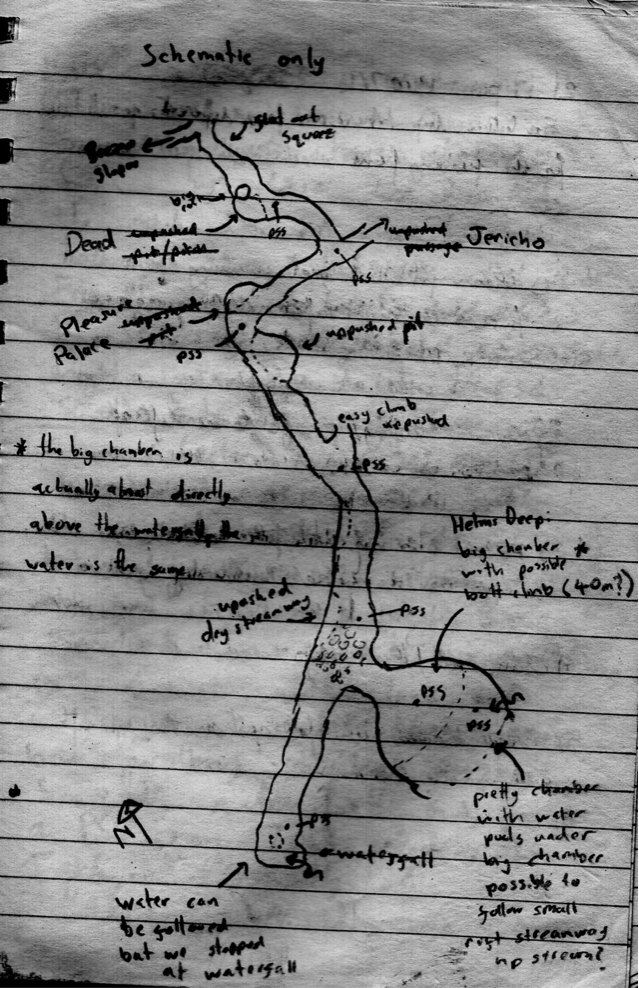 Schematic only
flat out
squeeze
slopes
big
Dead unpushed
pit/pitch
pss
unpushed
passage
Jericho
pss
Pleasure unpushed
Palace pit
pss
unpushed pit
easy climb
unpushed
pss
* the big chamber is
actually almost directly
above the waterfall, the
water is the same
Helms Deep:
big chamber *
with possible
bolt climb (40m?)
unpushed
dry streamway
pss
pss
pss
pretty chamber
with water
pools under
big chamber
possible to
follow small
streamway
up stream?
N
pss
waterfall
water can
be followed
but we stopped
at waterfall